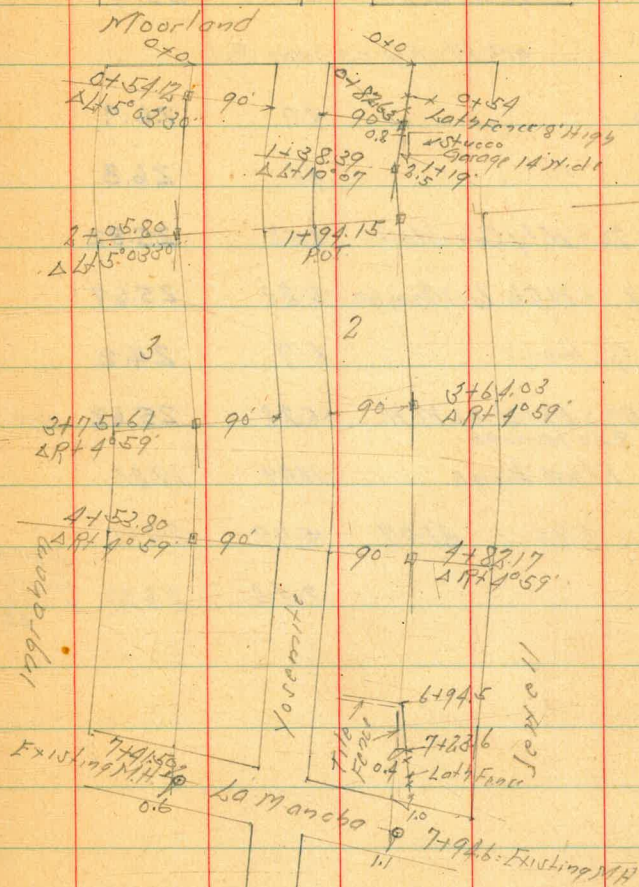 Moorland
0+0
0+0
0+54.12
Δ Lt 5°03'30"
90'
0+82.63
90'
0+54
Lath Fence 8' High
0.2
Stucco
Garage 14'
1+38.39
Δ Lt 10°07'
1+19
2.5
2+05.80
Δ Lt 5°03'30"
1+94.15
P.O.T.
3
2
3+75.61
Δ Rt 4°59'
90'
90'
3+64.03
Δ Rt 4°59'
4+53.80
Δ Rt 4°59'
90'
90
4+82.17
Δ Rt 4°59'
Ingraham
Yosemite
Jewell
6+94.5
Tile
Fence
7+23.6
0.4
Lath Fence
7+41.50
Existing M.H.
0.6
La Mancha
1.0
7+94.6 = Existing MH
1.1